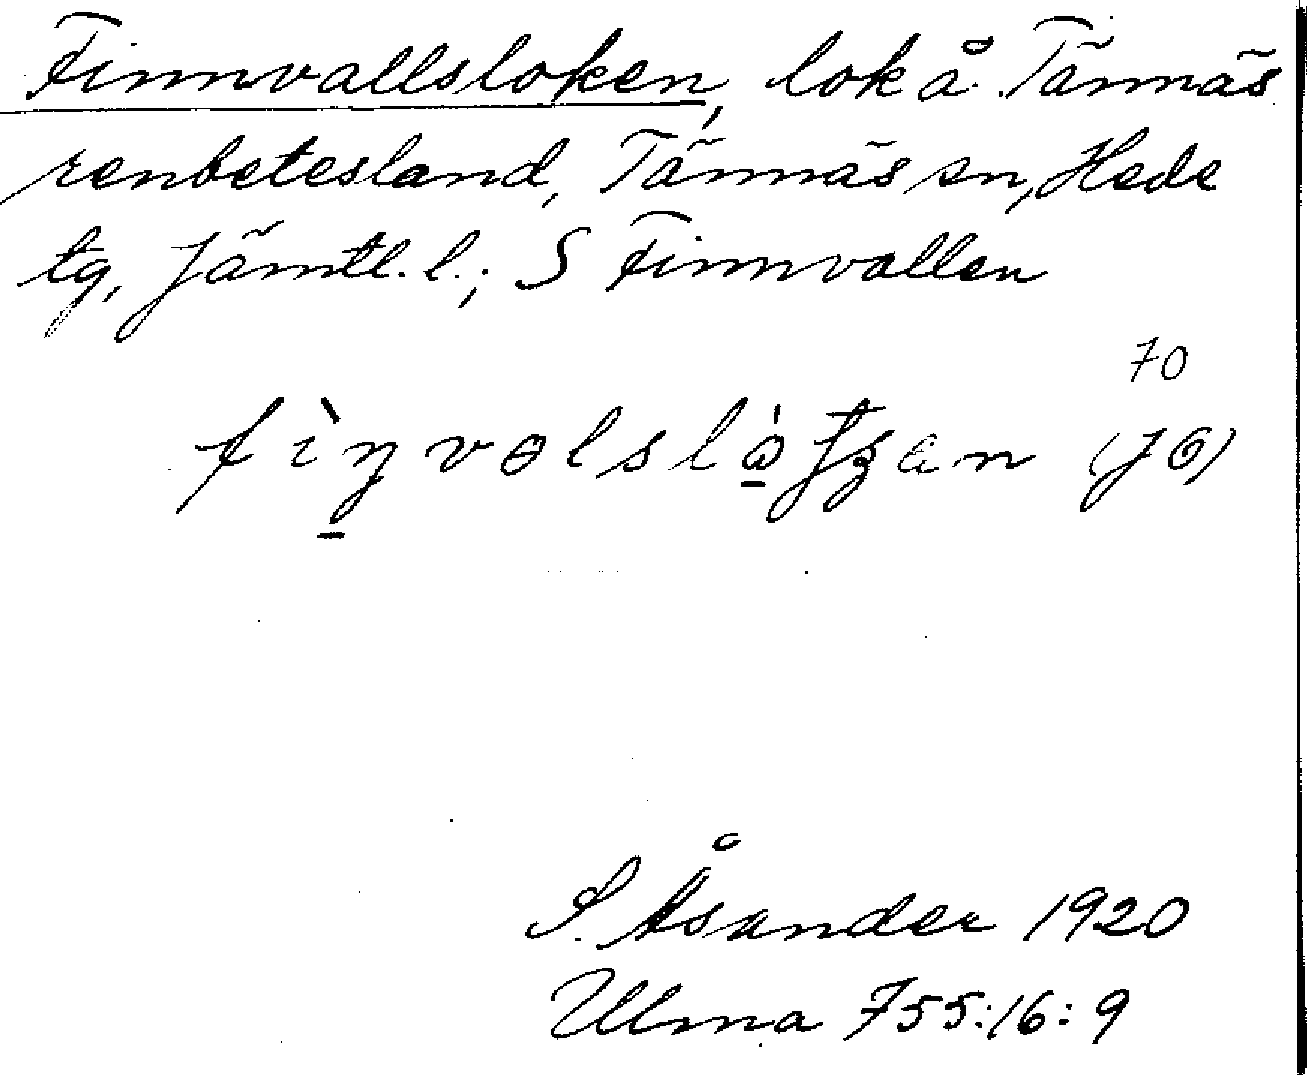 Finnvallsloken, lok å Tännäs
renbetesland, Tännäs sn, Hede
tg, Jämtl. l.; S Finnvallen
70
(JÖ)
S. Åsander 1920
Ulma 755:16:9